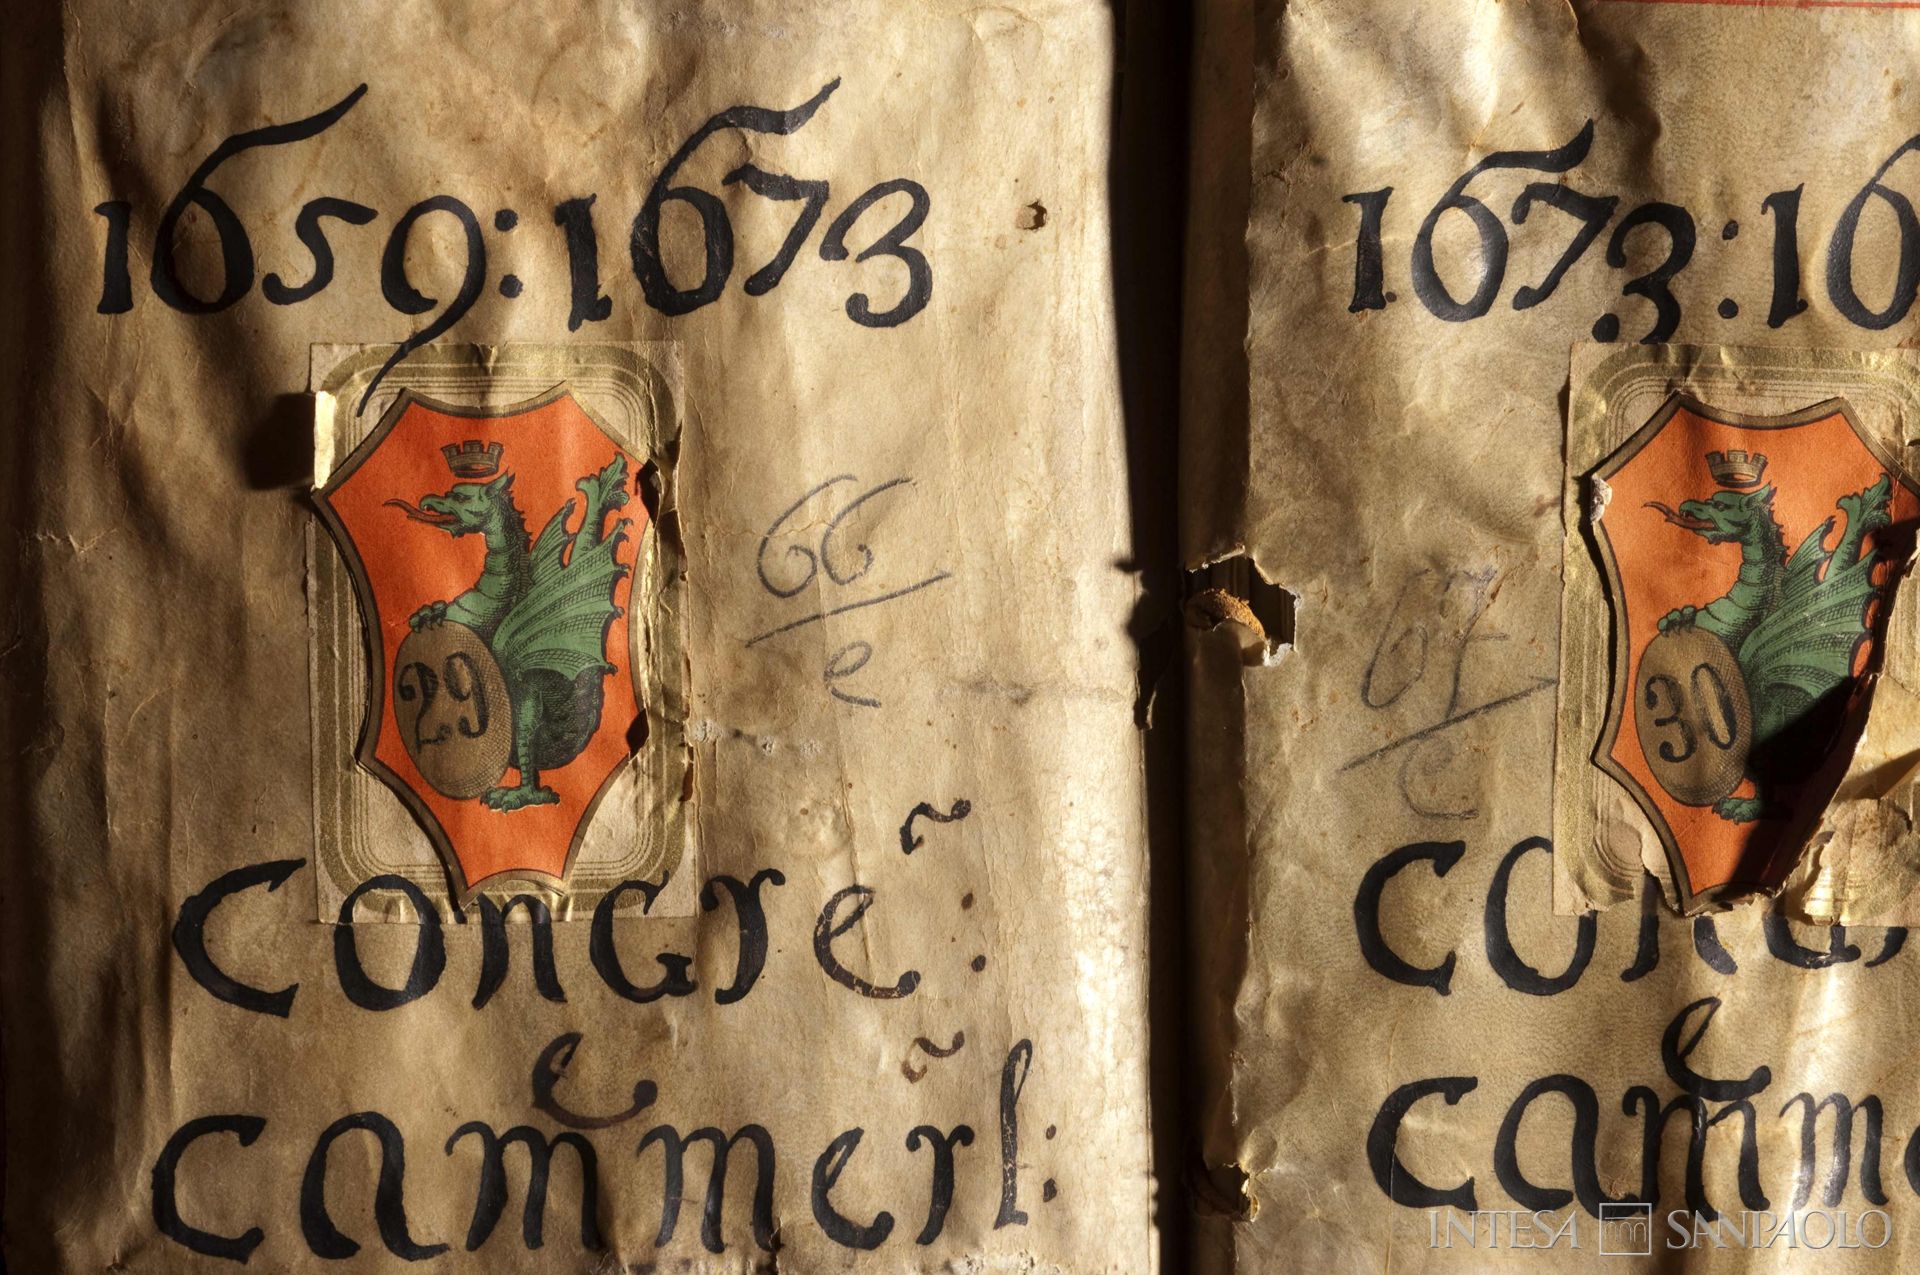 1659:1673
29
66
e
Congre~:
e
Cammer~l:
1673:16
30
67
e
Con
e
Camme
INTESA SANPAOLO